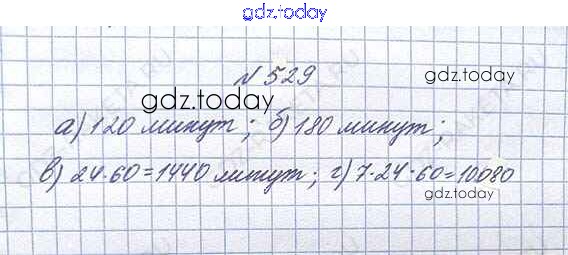 gdz.today
№ 529
gdz.today
gdz.today
а) 120 минут; б) 180 минут;
в) 24·60=1440 минут; г) 7·24·60=10080
gdz.today